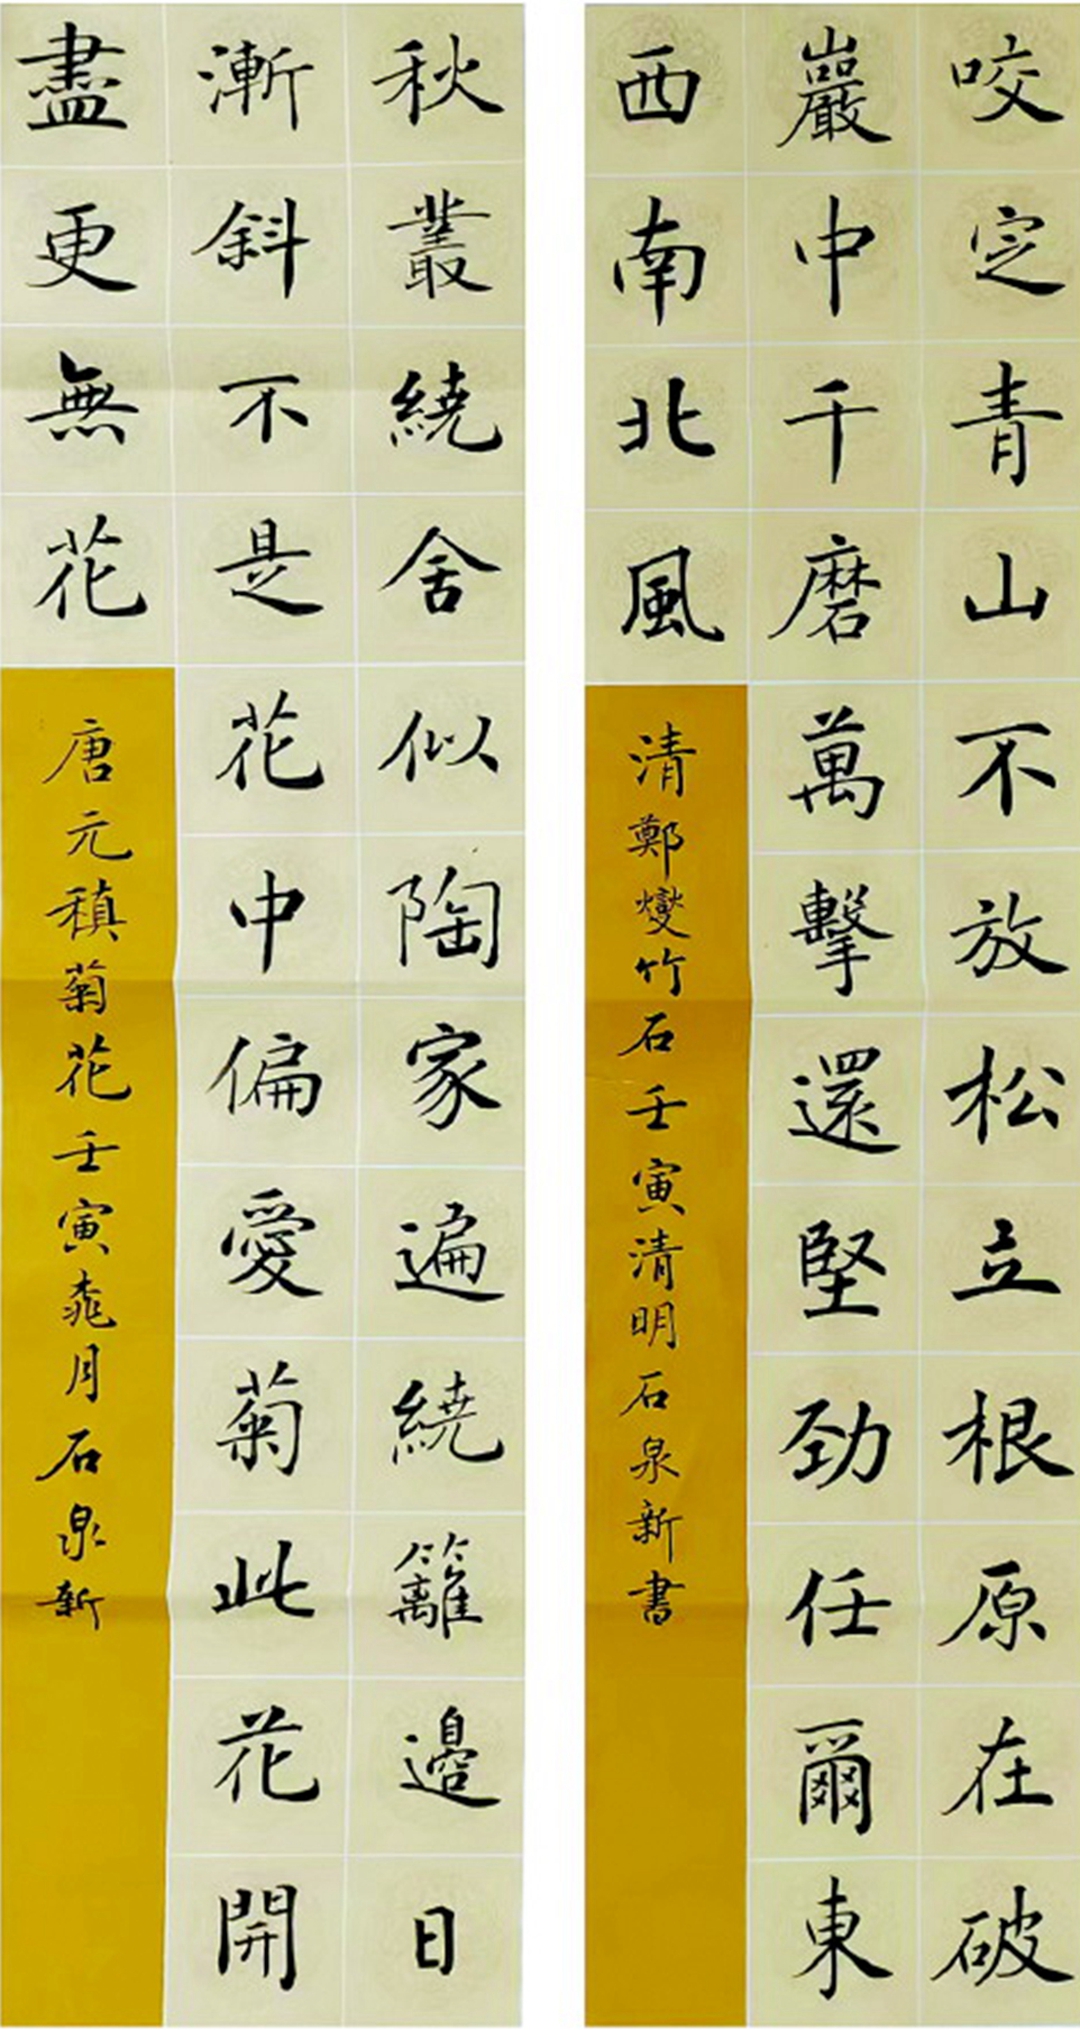 咬定青山不放松立根原在破
巖中千磨萬擊還堅勁任爾東
西南北風
清鄭燮竹石壬寅清明石泉新書
秋叢繞舍似陶家遍繞籬邊日
漸斜不是花中偏愛菊此花開
盡更無花
唐元稹菊花壬寅桃月石泉新